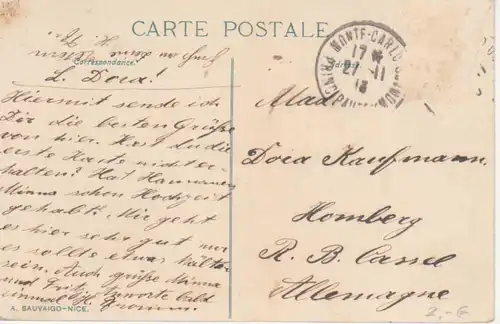 CARTE POSTALE
Correspondance.
L. Dora!
Hiermit sende ich
Dir die besten Grüße
von hier. Hast du die
erste Karte nicht er-
halten? Hat
Minna schon Hochzeit
gehabt. Mir geht
es hier sehr gut nur
es sollte etwas kälter
sein. Auch grüße Minna
und Fritz. Antworte bald
einmal
A. SAUVAIGO-NICE.
MONTE-CARLO
17
27 11
13
PRINCIPAUTÉ MONACO
Mad
Dora Kaufmann.
Homberg
R. B. Cassel
Allemagne
2.-€